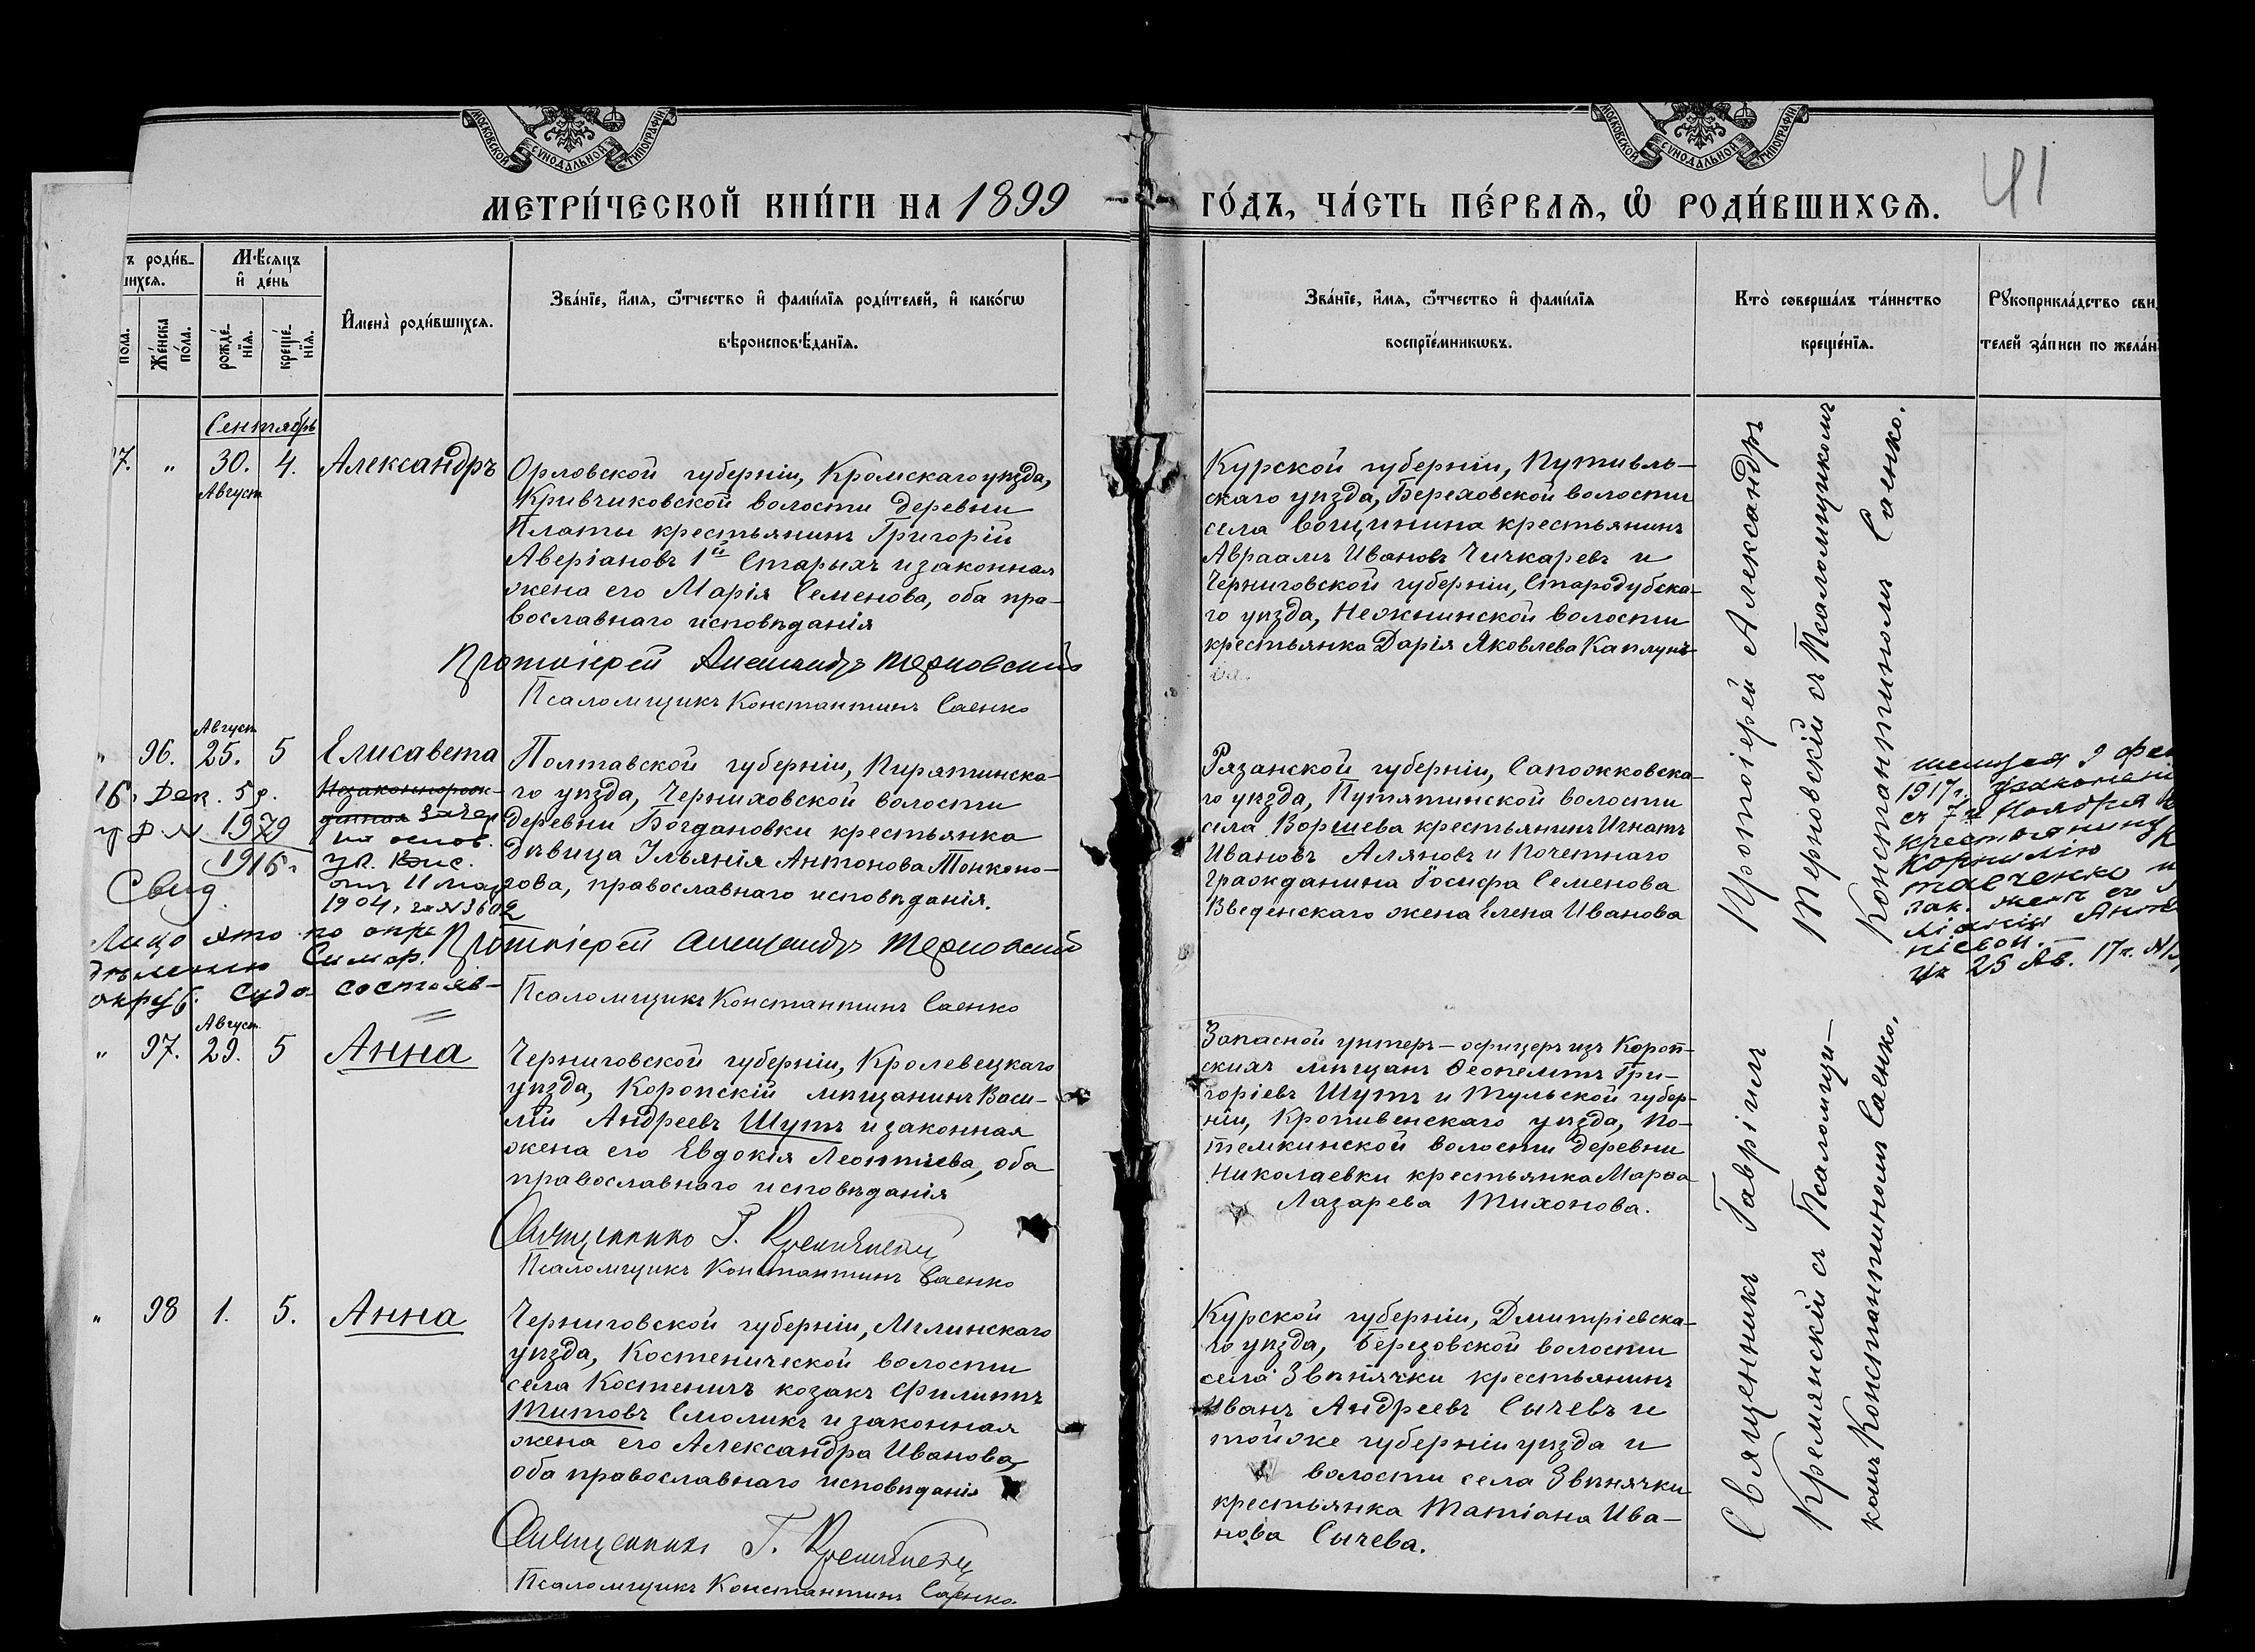 МОСКОВСКОЙ СУНОДАЛЬНОЙ ТИПОГРАФІИ
МОСКОВСКОЙ СУНОДАЛЬНОЙ ТИПОГРАФІИ
41
МЕТРИ́ЧЕСКОЙ КНИ́ГИ НА 1899
ГО́ДЪ, ЧА́СТЬ ПЕ́РВАѦ, Ѡ҆ РОДИ́ВШИХСѦ.
ъ роди́в-
шихсѧ.
Мѣ́сѧцъ
и҆ де́нь
пола.
Же́нска
по́ла.
рожде́-
нїѧ.
креще́-
нїѧ.
И҆мена̀ роди́вшихсѧ.
Зва́нїе, и҆́мѧ, ѻ҆́тчество и҆ фами́лїѧ роди́телей, и҆ како́гѡ
вѣроисповѣ́данїѧ.
Зва́нїе, и҆́мѧ, ѻ҆́тчество и҆ фами́лїѧ
воспрїе́мникѡвъ.
Кто̀ соверша́лъ та́инство
креще́нїѧ.
Рꙋкоприкла́дство сви
телей за́писи по жела́н
Сентябрь
7. " 30. 4. Александръ
Август
Орловской губерніи, Кромскаго уѣзда,
Кривчиковской волости деревни
Платы крестьянинъ Григорій
Аверіановъ 1й Старыхъ и законная
жена его Марія Семенова, оба пра-
вославнаго исповѣданія
Протоіерей Александръ Терновскій
Псаломщикъ Константинъ Саенко
Курской губерніи, Путивль-
скаго уѣзда, Береховской волости
села Вощинина крестьянинъ
Авраамъ Ивановъ Чичкаревъ и
Черниговской губерніи, Стародубска-
го уѣзда, Нежнинской волости
крестьянка Дарія Яковлева Каплунъ
Протоіерей Александръ
Терновскій съ Псаломщикомъ
Константиномъ Саенко.
Август
" 96. 25. 5 Елисавета
Незаконнорож-
денная Зачер
на основ.
ук. Конс.
отъ 11 мар
1904 г. за № 3602
16. Дек. 5 р.
1929
1916 г.
Свид.
Лицо это по опре
дѣленію Симф.
окруж. суда состояв-
Полтавской губерніи, Пирятинска-
го уѣзда, Черниховской волости
деревни Богдановки крестьянка
дѣвица Ульянія Антонова Тонконо-
гова, православнаго исповѣданія.
Протоіерей Александръ Терновскій
Псаломщикъ Константинъ Саенко
Рязанской губерніи, Сапожковска-
го уѣзда, Путятинской волости
села Воршева крестьянинъ Игнатъ
Ивановъ Аляновъ и Почетнаго
Гражданина Іосифа Семенова
Введенскаго жена Елена Иванова
шемуся 9 фев
1917 г. узаконен
съ 7го Ноября
крестьянину
Корнилію
тавченко и
зак. женѣ его
ліаніи Анто
ніевой.
Ук 25 Ав. 17 г. №
Август
" 97. 29. 5 Анна
Черниговской губерніи, Кролевецкаго
уѣзда, Коропскій мѣщанинъ Васи-
лій Андреевъ Шутъ и законная
жена его Евдокія Леонтіева, оба
православнаго исповѣданія
Священникъ Г. Кремянскій
Псаломщикъ Константинъ Саенко
Запасной унтеръ-офицеръ изъ Короп-
скихъ мѣщанъ Феопемптъ Гри-
горіевъ Шутъ и Тульской губер-
ніи, Кропивенскаго уѣзда, По-
темкинской волости деревни
Николаевки крестьянка Марѳа
Лазарева Тихонова.
Священникъ Гавріилъ
Кремянскій съ Псаломщи-
комъ Константиномъ Саенко.
" 98 1. 5. Анна
Черниговской губерніи, Мглинскаго
уѣзда, Костенической волости
села Костеничъ козакъ Филиппъ
Титовъ Смоликъ и законная
жена его Александра Иванова,
оба православнаго исповѣданія
Священникъ Г. Кремянскій
Псаломщикъ Константинъ Саенко.
Курской губерніи, Дмитріевска-
го уѣзда, Березовской волости
села Звѣнячки крестьянинъ
Иванъ Андреевъ Сычевъ и
тойже губерніи уѣзда и
волости села Звѣнячки
крестьянка Татіана Ива-
нова Сычева.